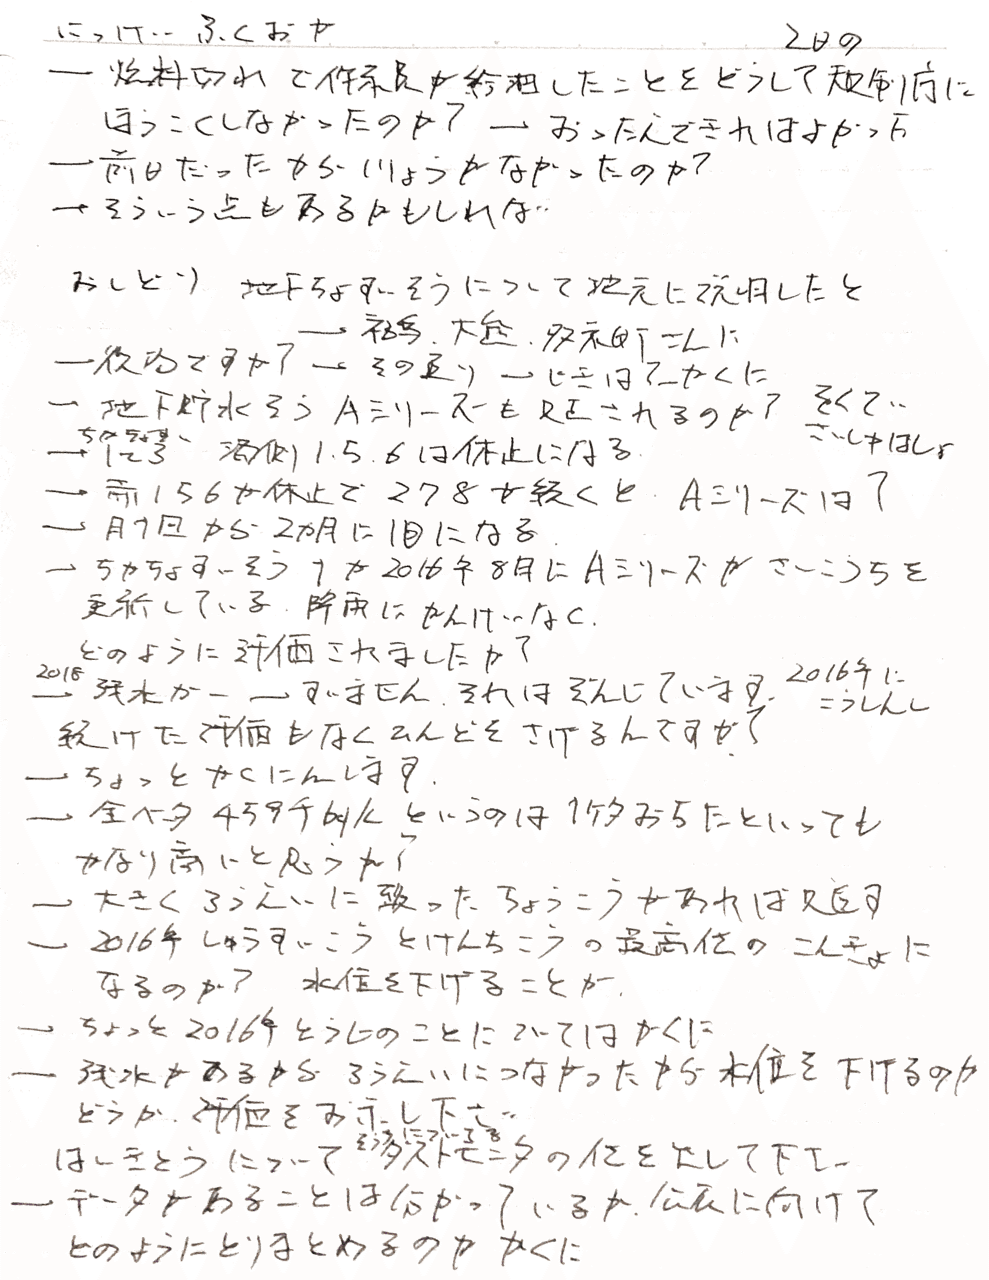 にっけい ふくおか 2日の
― 燃料切れで作業員が給油したことをどうして規制庁に
ほうこくしなかったのか? ― おったんできればよかった
― 前日だったからひょうかなかったのか?
→ そういう点もあるかもしれない
おしどり 地下ちょすいそうについて地元に説明したと
― 福島、大熊、双葉町さんに
― 役場ですか? ― その通り ― じきはかくに
― 地下貯水そう Aシリーズも是正されるのか? そくてい
さいしゅはしょ
ちかちょすい
― 海側 1.5.6は休止になる
― 前156が休止で278が続くと Aシリーズは?
― 月1回から2カ月に1回になる
― ちかちょすいそう1が2016年8月にAシリーズがさいこうちを
更新している。降雨にかんけいなく。
どのように評価されましたか?
2018
― 残水が ― すいません それはぞんじています。 2016年に
こうしんし
続けた評価もなくひんどをさげるんですか?
― ちょっとかくにんします。
― 全ベータ 459千bq/L というのは1ケタおちたといっても
かなり高いと思うが?
― 大きくろうえいに至ったちょうこうがあれば是正す
― 2016年しゅうすいこうとけんちこうの最高位のこんきょに
なるのか? 水位を下げることが。
― ちょっと2016年とうじのことについてはかくに
― 残水があるから ろうえいにつながったから水位を下げるのか
どうか、評価をお示し下さい
はいきとうについて ダストモニタの値を出して下さい
― データがあることは分かっているが、公表に向けて
どのようにとりまとめるのか かくに